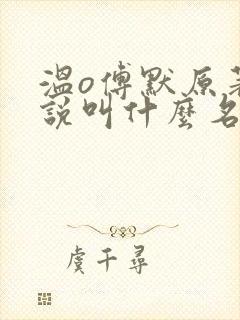 温o傅默原著
説叫什麼名
虞千尋